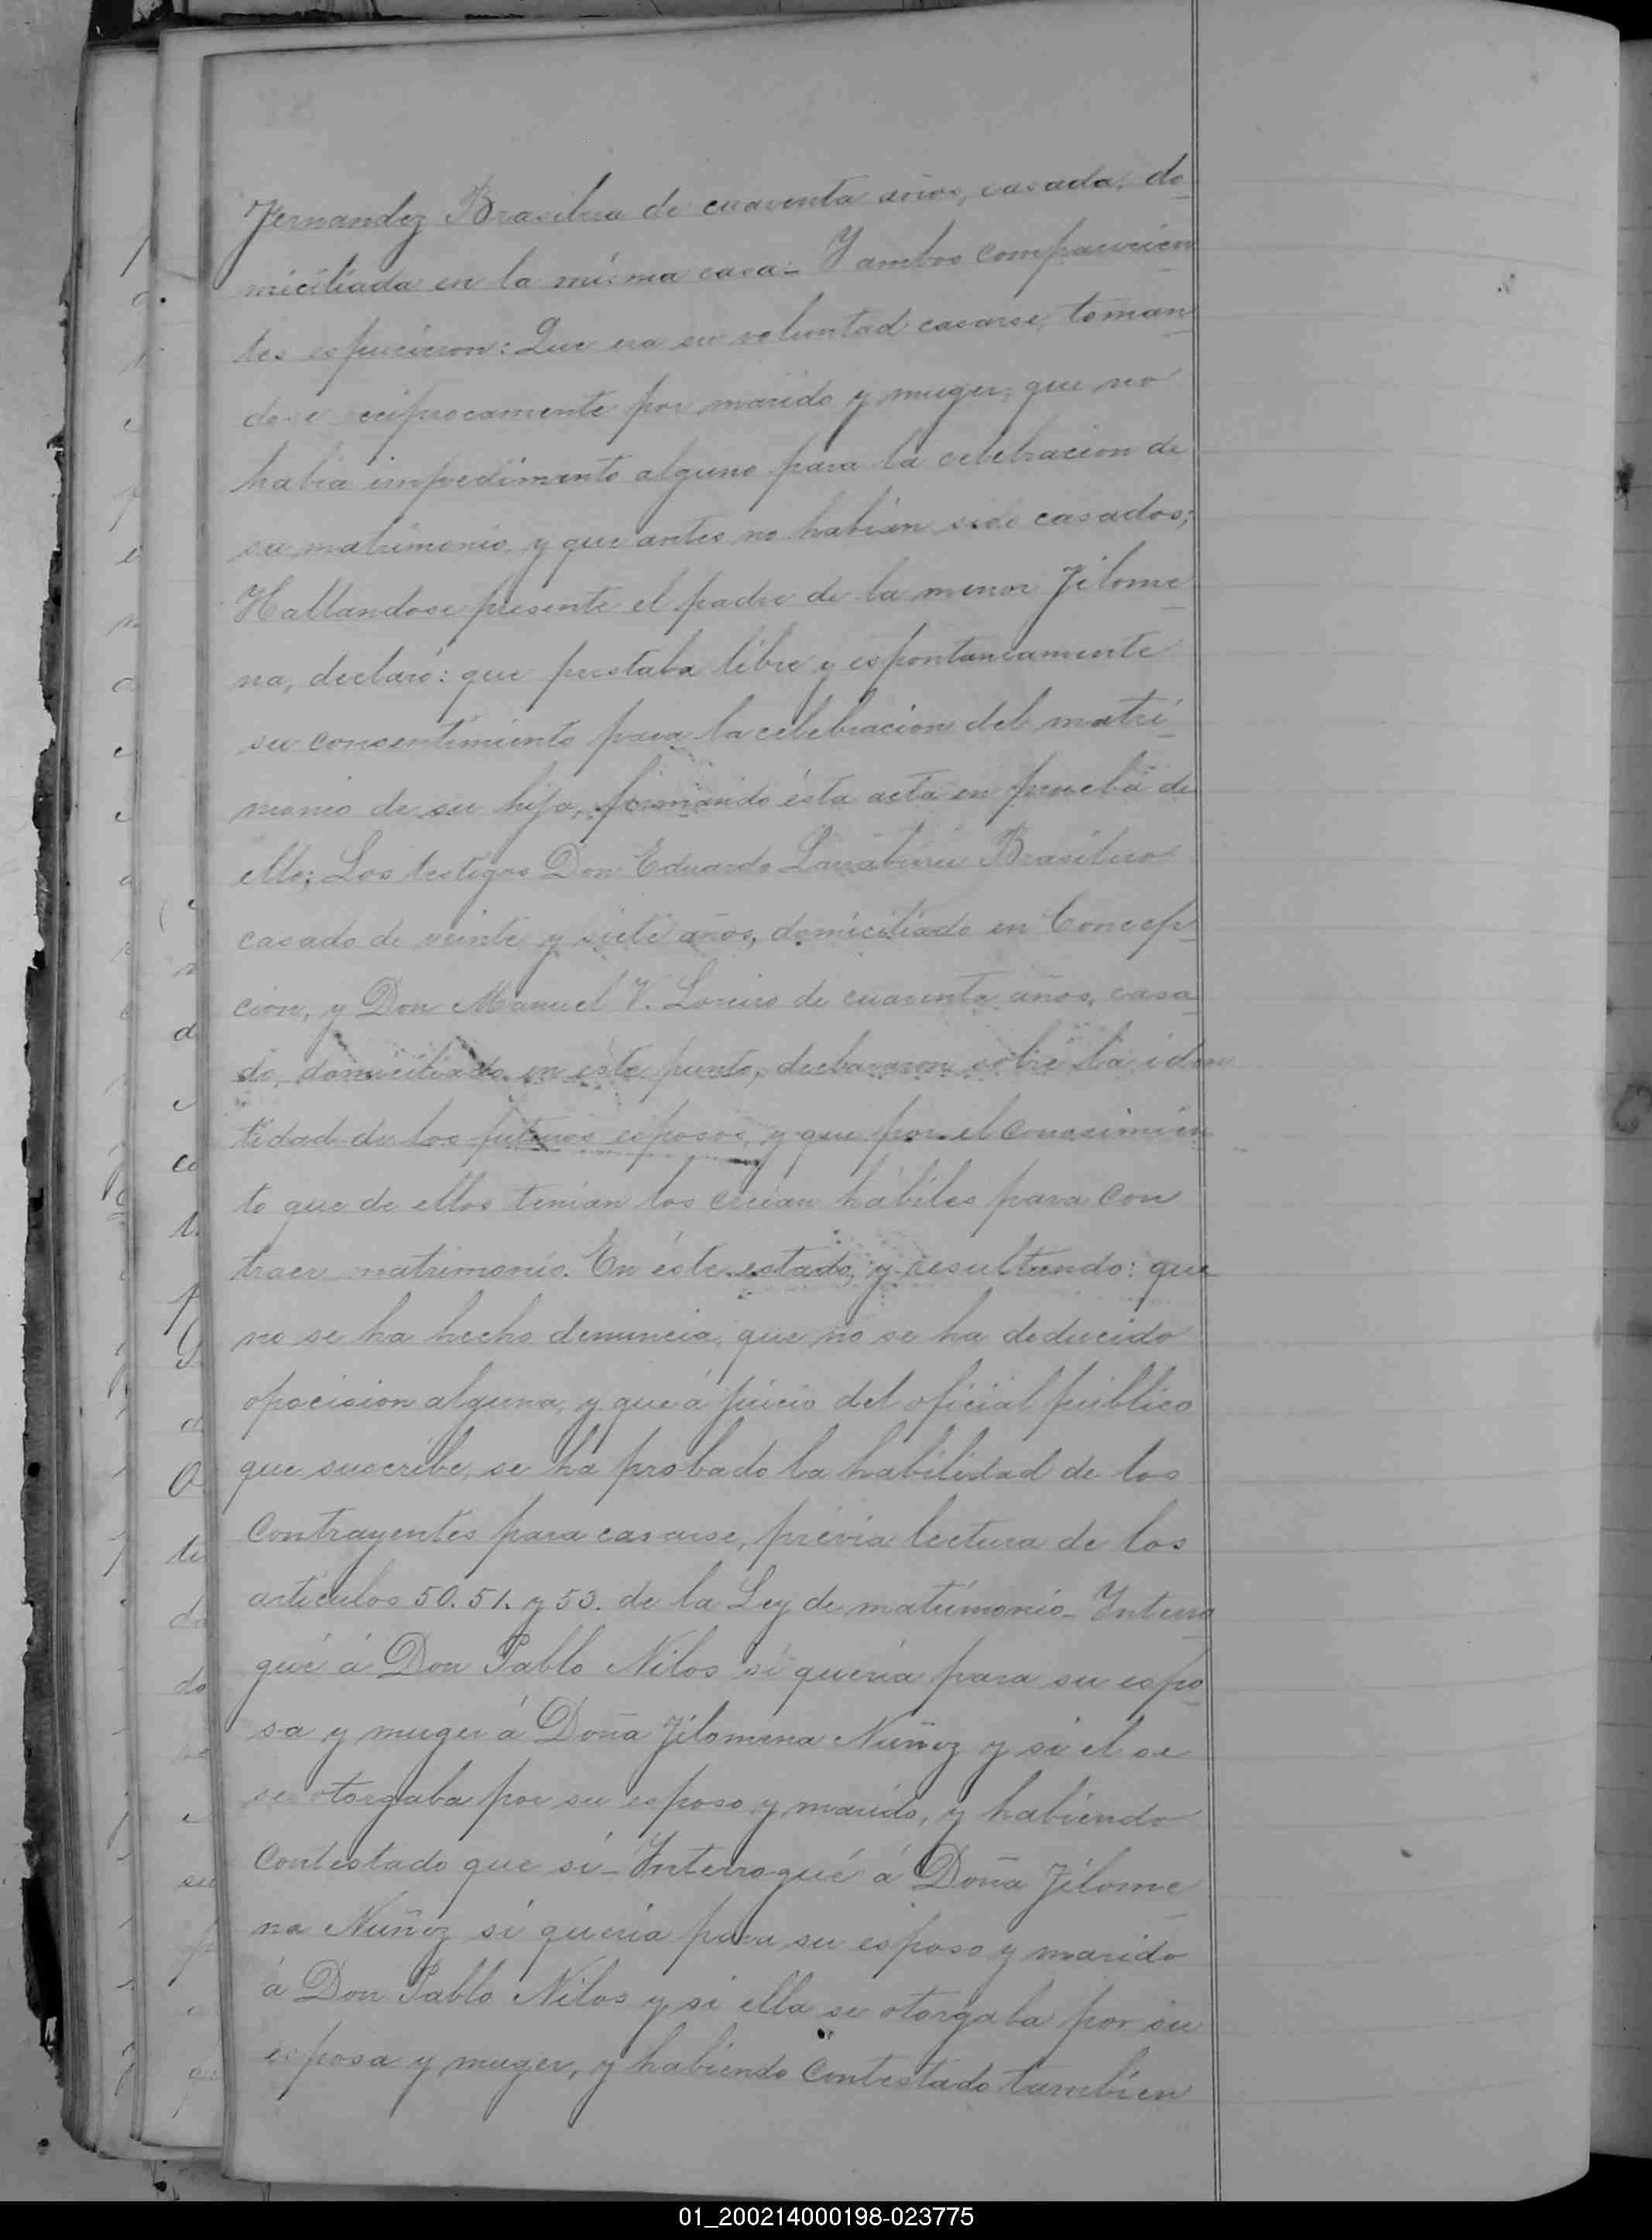 Fernandez Brasilera de cuarenta años, casada, do
miciliada en la misma casa_ Y ambos comparecien
tes espusieron: Que era su voluntad casarse, toman
dose reciprocamente por marido y muger, que no
habia impedimento alguno para la celebracion de
su matrimonio, y que antes no habian sido casados;
Hallandose presente el padre de la menor Filome
na, declaró: que prestaba libre y espontaneamente
su consentimiento para la celebracion del matri
monio de su hija, firmando ésta acta en prueba de
ello; Los testigos Don Eduardo Brasilero
casado de veinte y siete años, domiciliado en Concep
cion, y Don Manuel V. Loreiro de cuarenta años, casa
do, domiciliado en este punto, declararon sobre la iden
tidad de los futuros esposos, y que por el conosimien
to que de ellos tenian los creian hábiles para con
traer matrimonio. En éste estado, y resultando: que
no se ha hecho denuncia, que no se ha deducido
oposicion alguna, y que á juicio del oficial público
que suscribe, se ha probado la habilidad de los
contrayentes para casarse, previa lectura de los
articulos 50. 51. y 53. de la Ley de matrimonio_ Interro
gué á Don Pablo Nilos si queria para su espo
sa y muger á Doña Filomena Nuñez y si el se
se otorgaba por su esposo y marido, y habiendo
contestado que si_ Interrogué á Doña Filome
na Nuñez si queria para su esposo y marido
á Don Pablo Nilos y si ella se otorgaba por su
esposa y muger, y habiendo contestado tambien
01_200214000198-023775